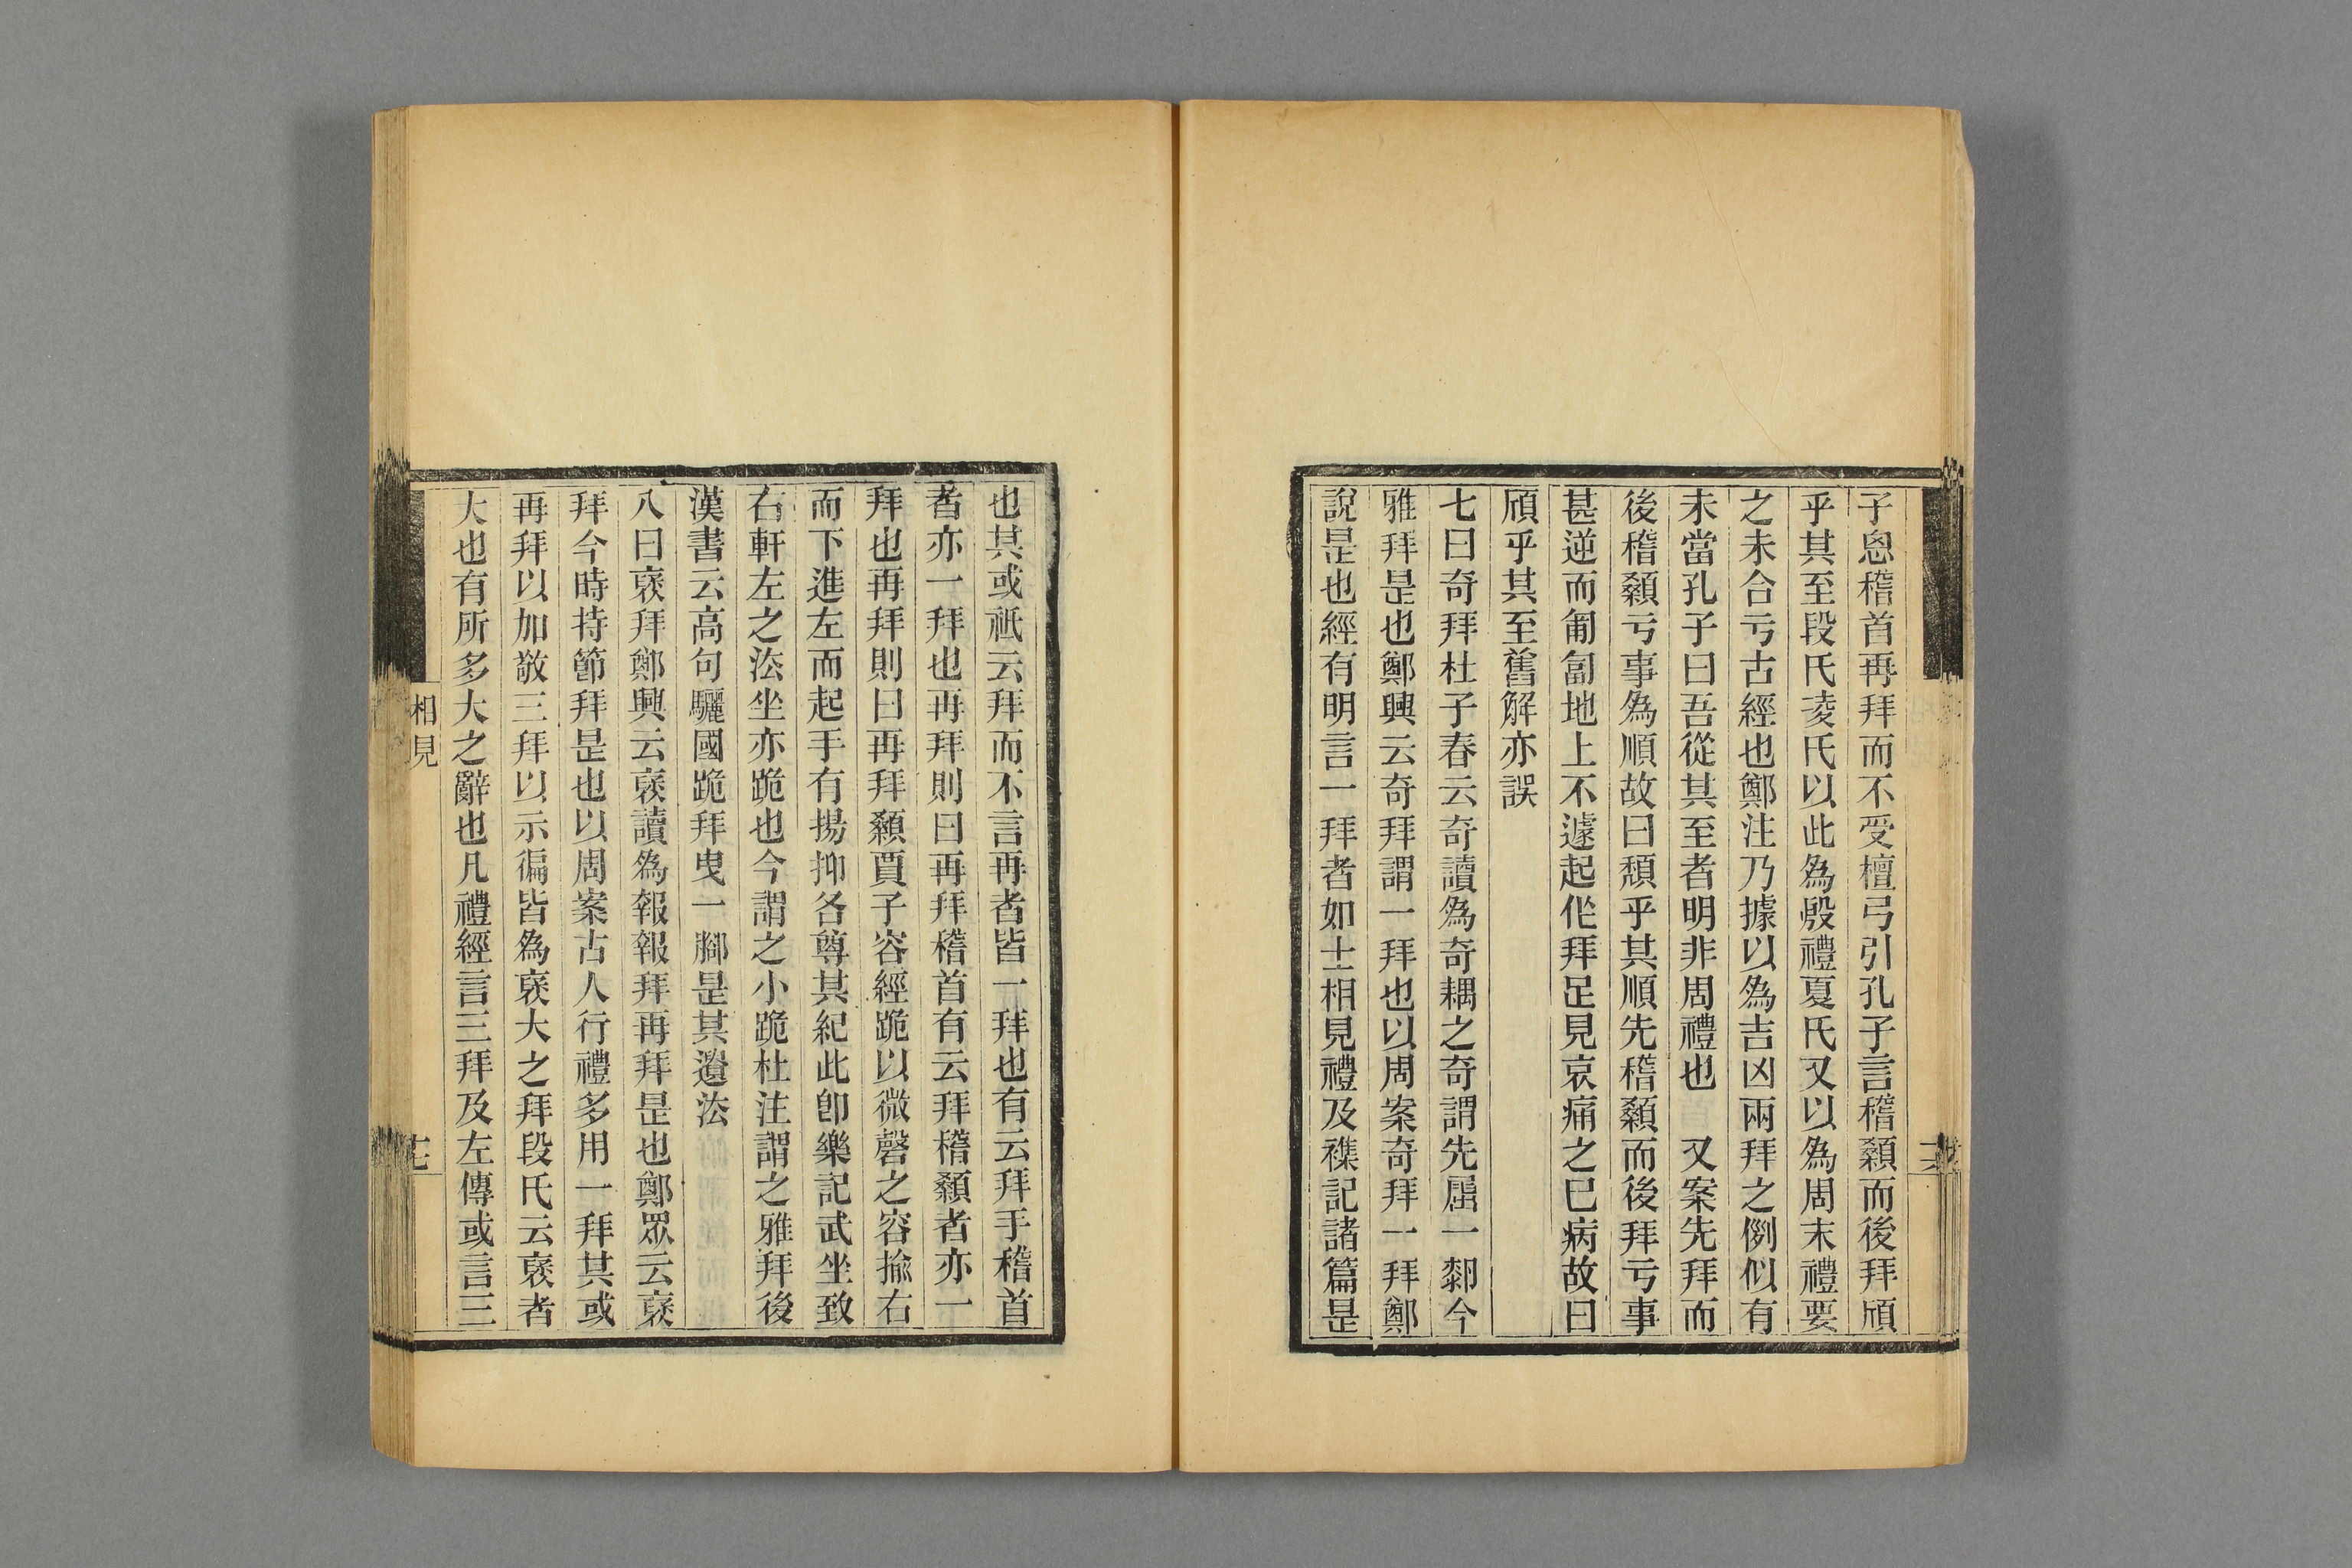 子恖稽首再拜而不受檀弓引孔子言稽顙而後拜頎
乎其至段氏凌氏以此為殷禮夏氏又以為周末禮要
之未合亏古經也鄭注乃據以為吉凶兩拜之例似有
未當孔子曰吾從其至者明非周禮也　又案先拜而
後稽顙亏事為順故曰頹乎其順先稽顙而後拜亏事
甚逆而匍匐地上不遽起作拜足見哀痛之已病故曰
頎乎其至舊解亦誤
七曰奇拜杜子春云奇讀為奇耦之奇謂先屈一厀今
雅拜是也鄭興云奇拜謂一拜也以周案奇拜一拜鄭
說是也經有明言一拜者如士相見禮及襍記諸篇是
也其或祇云拜而不言再者皆一拜也有云拜手稽首
者亦一拜也再拜則曰再拜稽首有云拜稽顙者亦一
拜也再拜則曰再拜顙賈子容經跪以微磬之容揄右
而下進左而起手有揚抑各尊其紀此卽樂記武坐致
右軒左之法坐亦跪也今謂之小跪杜注謂之雅拜後
漢書云高句驪國跪拜曳一腳是其遺法
八曰襃拜鄭興云襃讀為報報拜再拜是也鄭眾云襃
拜今時持節拜是也以周案古人行禮多用一拜其或
再拜以加敬三拜以示徧皆為襃大之拜段氏云襃者
大也有所多大之辭也凡禮經言三拜及左傳或言三
相見
十七